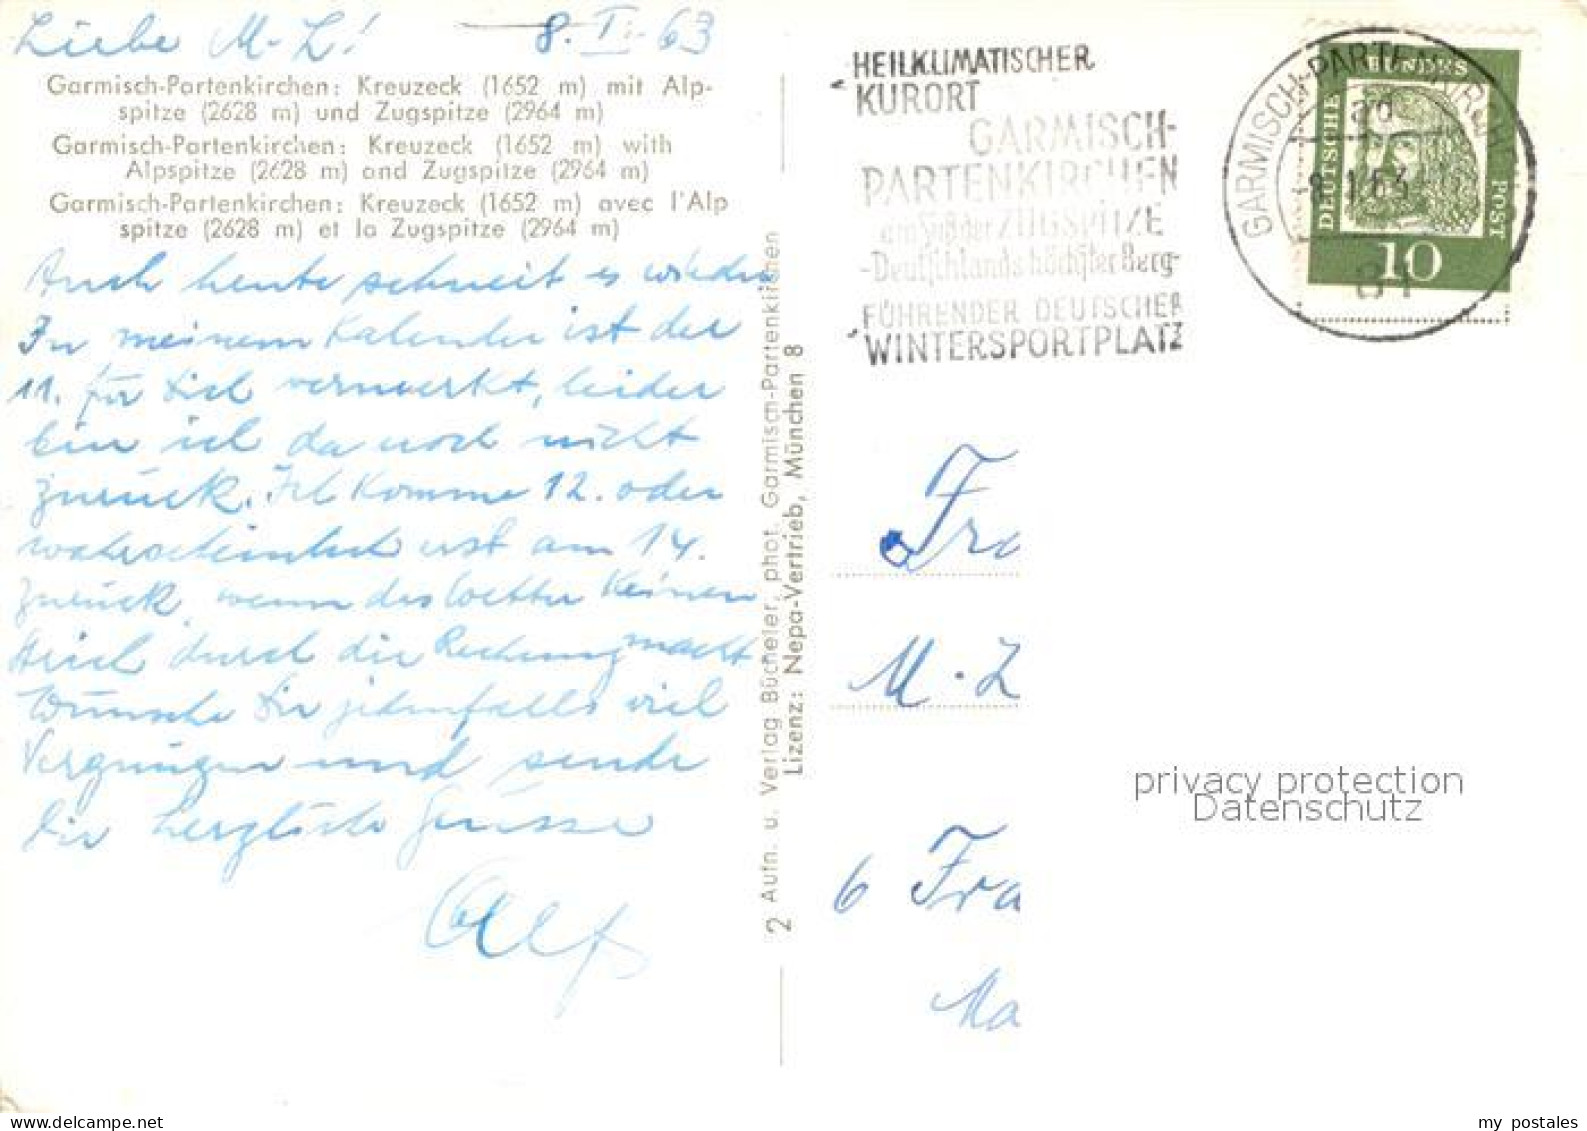 Liebe M-L! 8. I. 63
Garmisch-Partenkirchen: Kreuzeck (1652 m) mit Alp-
spitze (2628 m) und Zugspitze (2964 m)
Garmisch-Partenkirchen: Kreuzeck (1652 m) with
Alpspitze (2628 m) and Zugspitze (2964 m)
Garmisch-Partenkirchen: Kreuzeck (1652 m) avec l'Alp
spitze (2628 m) et la Zugspitze (2964 m)
Auch heute schneit es wieder
In meinem Kalender ist der
11. für Dich vermerkt, leider
bin ich da noch nicht
zurück. Ich komme 12. oder
wahrscheinlich erst am 14.
zurück, wenn das Wetter keinen
Strich durch die Rechnung macht
Wünsche Dir jedenfalls viel
Vergnügen und sende
Dir herzliche Grüsse
2 Aufn. u. Verlag Bücheler, phot. Garmisch-Partenkirchen
Lizenz: Nepa-Vertrieb, München 8
HEILKLIMATISCHER
KURORT
GARMISCH-
PARTENKIRCHEN
am Fuß der ZUGSPITZE
-Deutschlands höchster Berg-
FÜHRENDER DEUTSCHER
WINTERSPORTPLATZ
GARMISCH-PARTENKIRCHEN
-8.1.63
DEUTSCHE
BUNDES
POST
10
Fra
M-L
6 Fra
Ma
privacy protection
Datenschutz
my postales